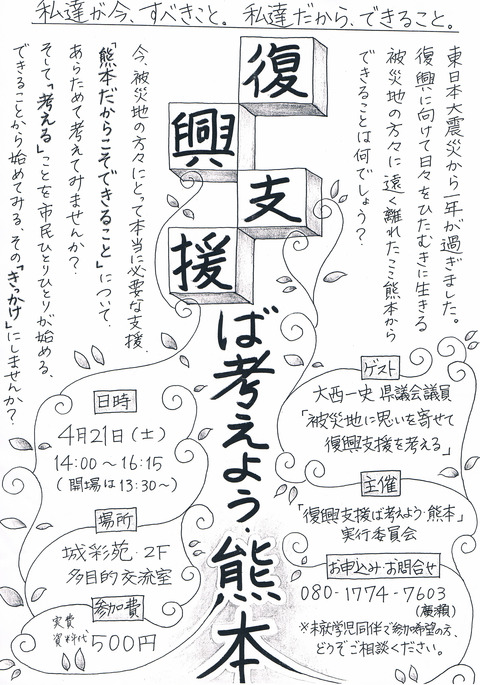 私達が今、すべきこと。私達だから、できること。
復興支援
ば考えよう・熊本
東日本大震災から一年が過ぎました。
復興に向けて日々をひたむきに生きる
被災地の方々に遠く離れたここ熊本から
できることは何でしょう？
今、被災地の方々にとって本当に必要な支援、
「熊本だからこそできること」について、
あらためて考えてみませんか？
そして「考える」ことを市民ひとりひとりが始める、
できることから始めてみる、その「きっかけ」にしませんか？
日時
4月21日（土）
14:00～16:15
（開場は13:30～）
場所
城彩苑・2F
多目的交流室
参加費
実費
資料代
500円
ゲスト
大西一史 県議会議員
「被災地に思いを寄せて
復興支援を考える」
主催
「復興支援ば考えよう・熊本」
実行委員会
お申込み・お問合せ
080-1774-7603
（廣瀬）
※未就学児同伴で参加希望の方、
どうぞご相談ください。